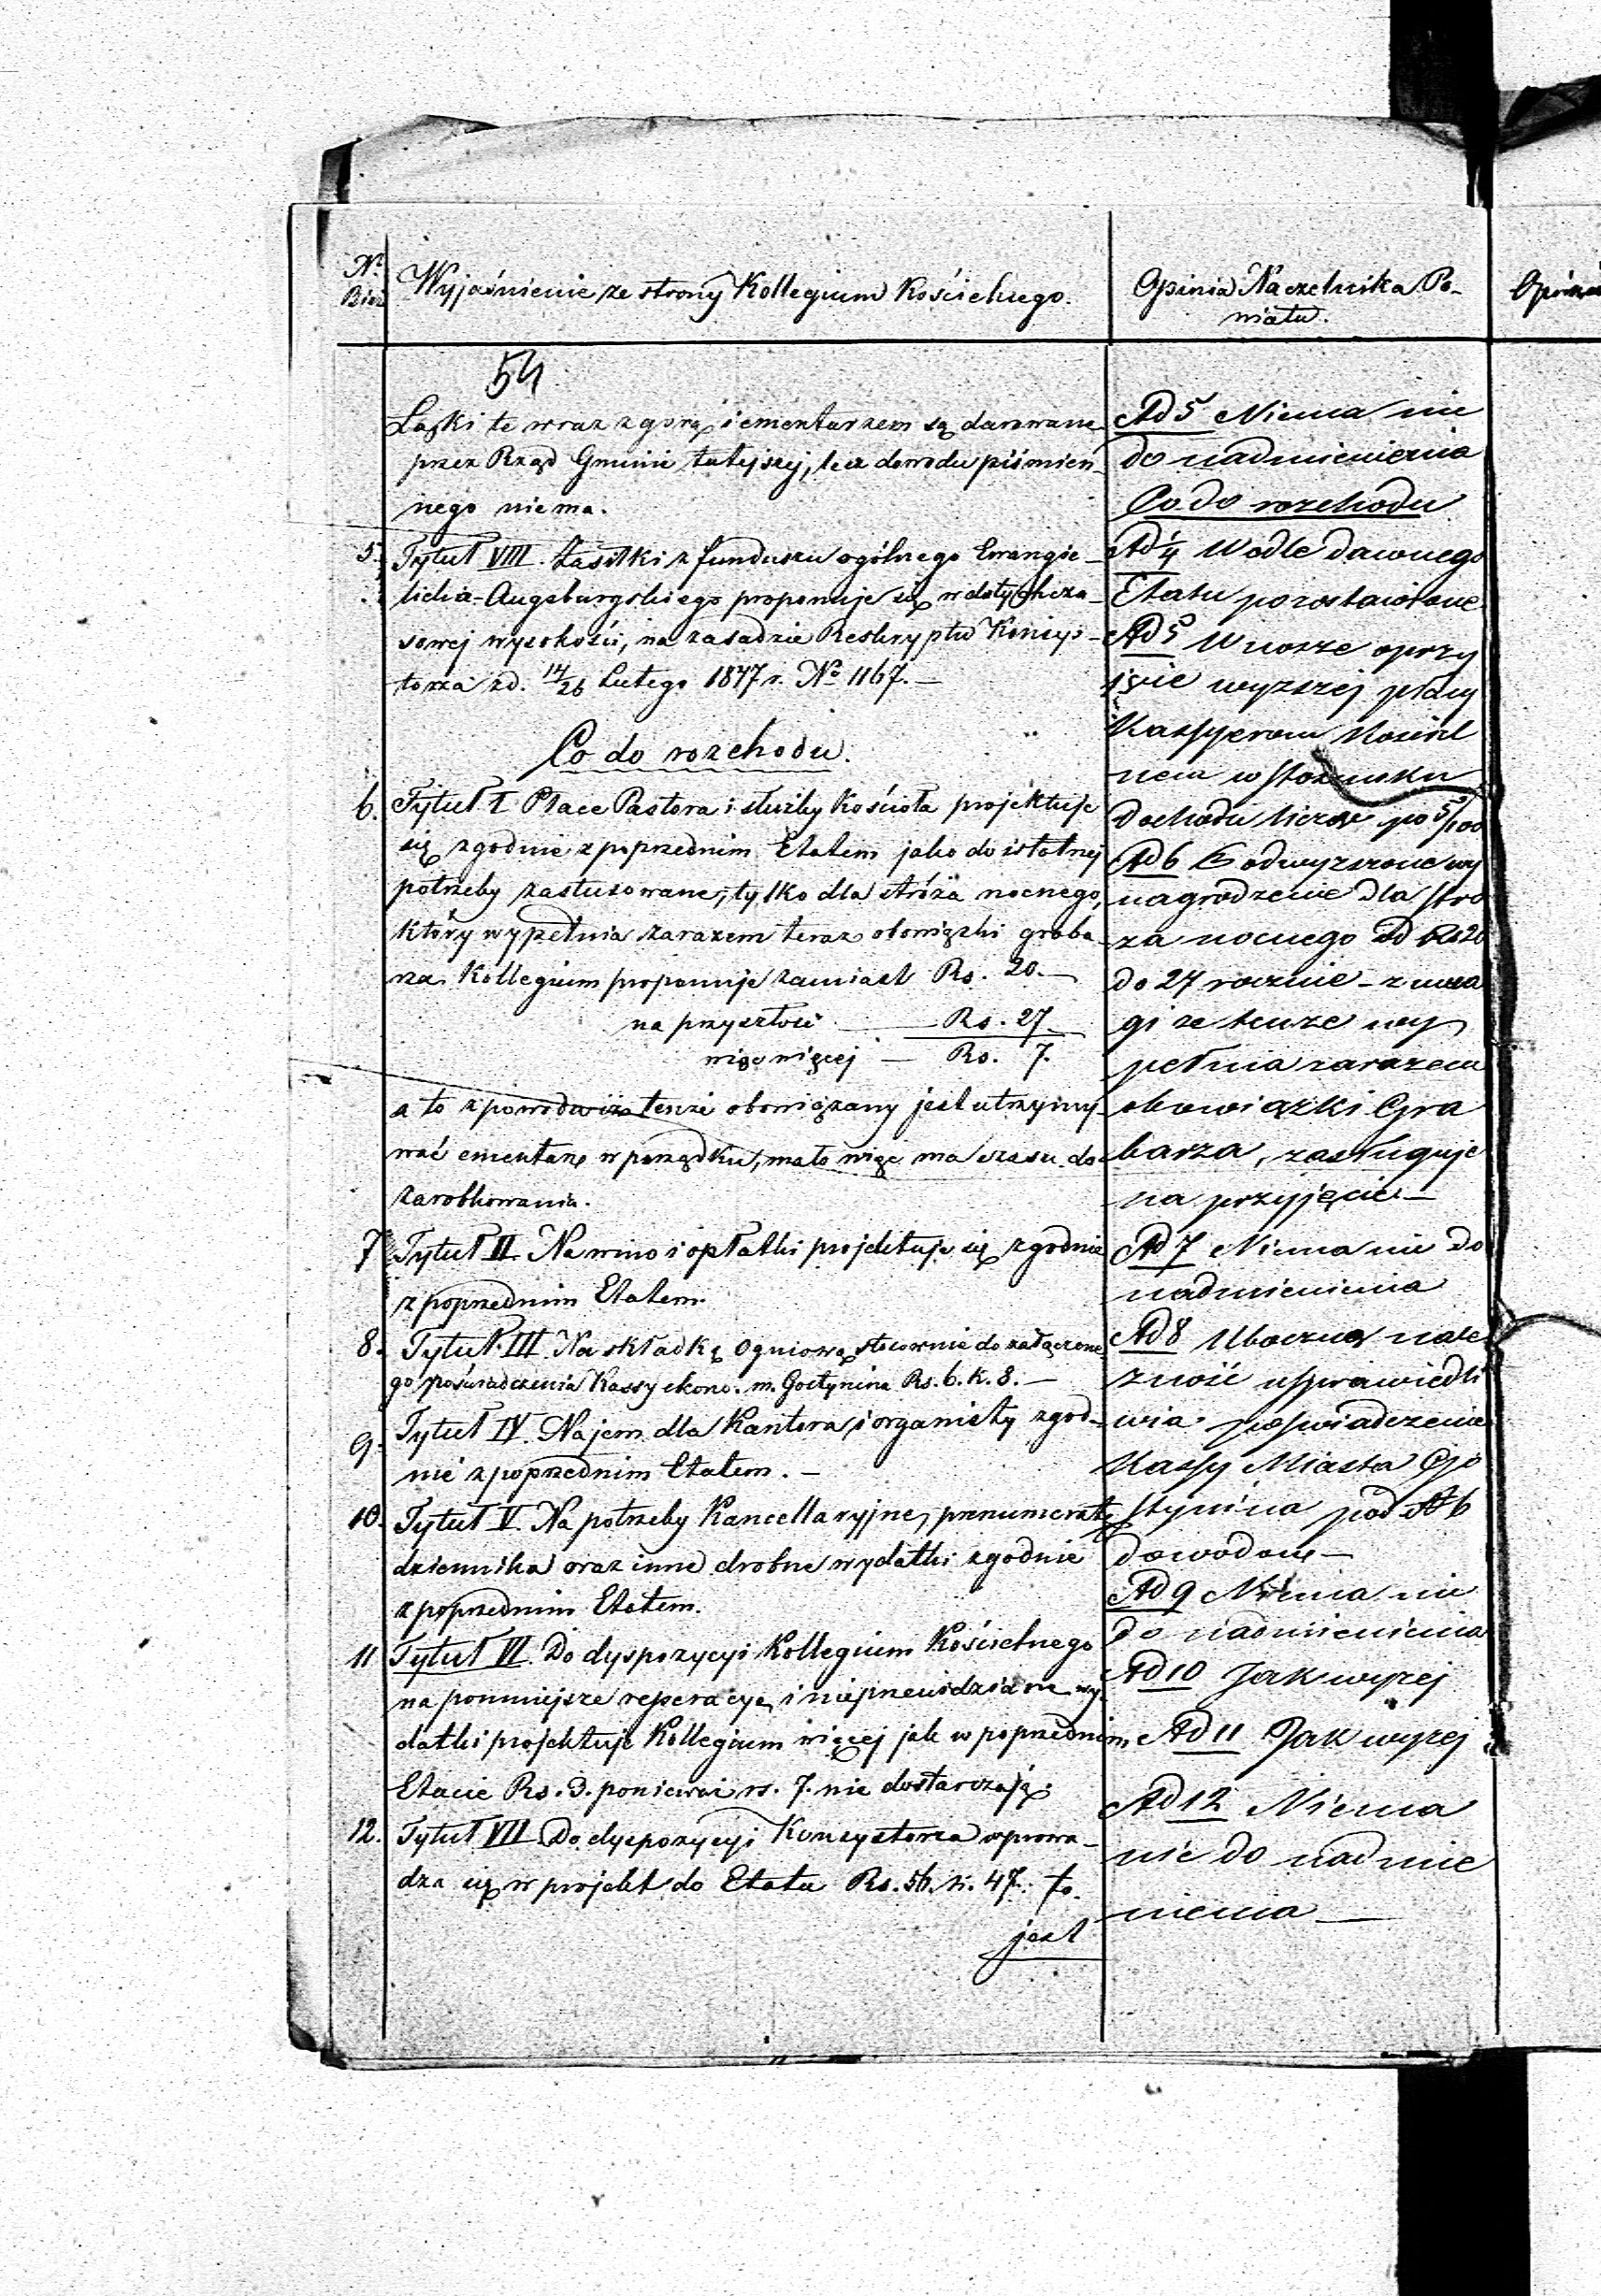 Nr
Bież
Wyjaśnienie ze strony Kollegium Kościelnego.
Opinia Naczelnika Po-
wiatu.
Opinia
54
Łąski te wraz z górą i cmentarzem są darowane
przez Rząd Gminie tutejszej, lecz dowodu piśmien-
nego niema.
5. Tytuł VIII. Zasiłki z funduszu ogólnego Ewangie-
licko-Augsburgskiego proponuje się w dotychcza-
sowej wysokości, na zasadzie Reskryptu Konsys-
torza z d. 14/26 Lutego 1877 r. No 1167.—
Co do rozchodu.
6. Tytuł I Płace Pastora i służby Kościoła projektuje
się zgodnie z poprzednim Etatem jako do istotnej
potrzeby zastosowane, tylko dla stróża nocnego,
który wypełnia zarazem teraz obowiązki graba-
rza Kollegium proponuje zamiast Rs. 20.—
na przyszłość — Rs. 27
więc więcej — Rs. 7.
a to z powodu iż tenże obowiązany jest utrzymy-
wać cmentarz w porządku, mało więc ma czasu do
zarobkowania.
7 Tytuł II. Na wino i opłatki projektuje się zgodnie
z poprzednim Etatem.
8. Tytuł III. Na składkę Ogniową stosownie do załączone-
go poświadczenia Kassy ekono. m. Gostynina Rs. 6. k. 8.—
9. Tytuł IV. Najem dla Kantora i organisty zgod-
nie z poprzednim Etatem.—
10. Tytuł V. Na potrzeby Kancellaryjne, prenumeratę
dziennika oraz inne drobne wydatki zgodnie
z poprzednim Etatem.
11 Tytuł VI. Do dyspozycyi Kollegium Kościelnego
na pomniejsze reperacye i nieprzewidziane wy-
datki projektuje Kollegium więcej jak w poprzednim
Etacie Rs. 3. ponieważ rs. 7. nie dostarczają.
12. Tytuł VII Do dyspozycyi Konsystorza wprowa-
dza się w projekt do Etatu Rs. 56. k. 47. to.
jest
Ad 5 Niema nic
do nadmienienia
Co do rozchodu
Ad 4 Wedle dawnego
Etatu pozostawione
Ad 5 Wnoszę o przy
jęcie wyższej płacy
Kassyerowi Kościel
nemu w stosunku
dochodu licząc po 5/100
Ad 6 Podwyższone wy
nagrodzenie dla stró
ża nocnego od Rs 20
do 27 rocznie – z uwa
gi że tenże wy
pełnia zarazem
obowiązki Gra
barza, zasługuje
na przyjęcie —
Ad 7 Niema nic do
nadmienienia
Ad 8 Uboczną nale
żność usprawiedli
wia poświadczenie
Kassy Miasta Go
stynina pod No 6
dowodow —
Ad 9 Niema nic
do nadmienienia
Ad 10 Jak wyżej
Ad 11 Jak wyżej
Ad 12 Niema
nic do nadmie
nienia —